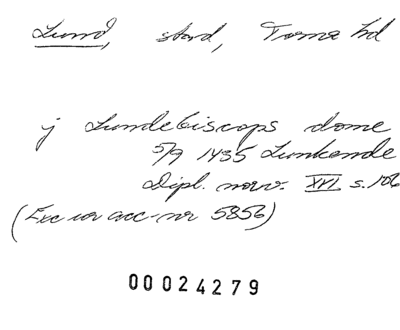 Lund, stad, Torna hd
j Lundebiscops dome
5/9 1435 Lunkende
Dipl. norv. XVI s. 106
(Exc ur acc-nr 5856)
00024279